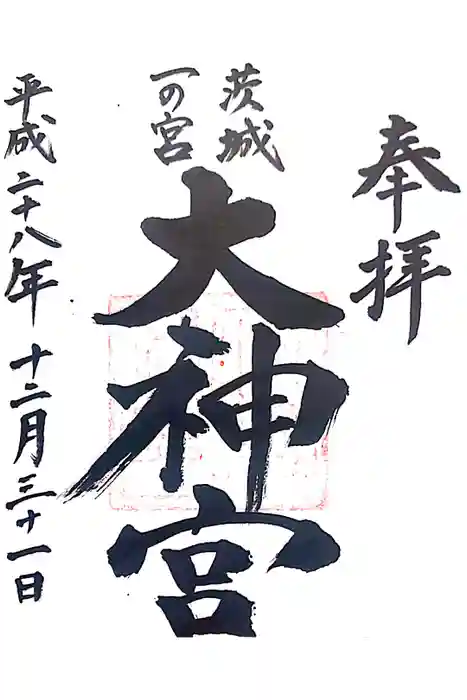 奉拝
茨城
一の宮
大神宮
平成二十八年十二月三十一日